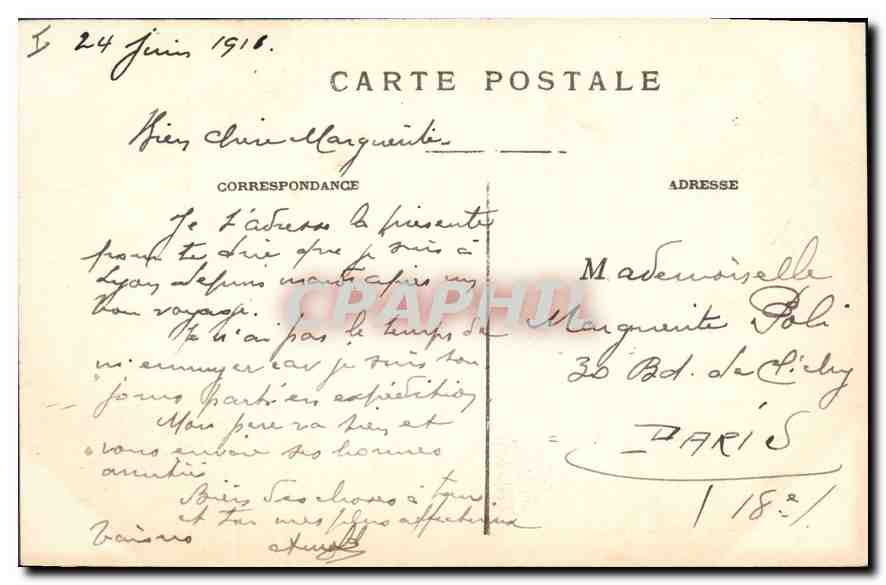 24 juin 1916.
CARTE POSTALE
Bien chère Marguerite
CORRESPONDANCE
ADRESSE
Je t'adresse la présente
pour te dire que je suis à
Lyon depuis mardi après un
bon voyage.
Je n'ai pas le temps de
m'ennuyer car je suis tou
jours parti en expédition
Mon père va bien et
vous envoie ses bonnes
amitiés
Bien des choses à tous
et toi mes plus affectueux
baisers
Mademoiselle
Marguerite Poli
30 Bd. de Clichy
PARIS
18e
CPAPHIL